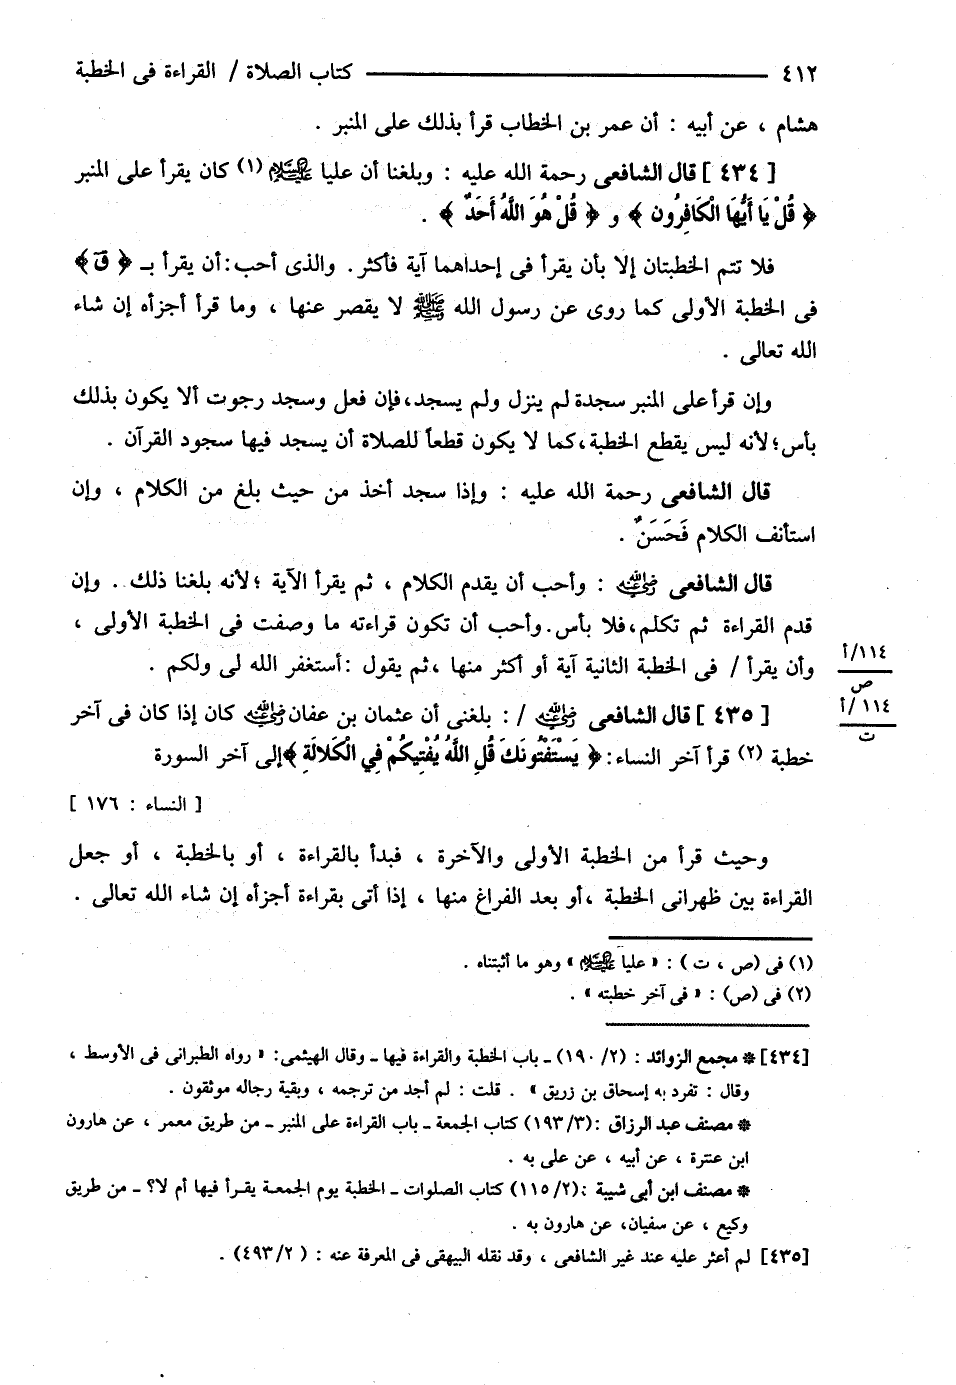 ٤١٢ ــــــــــ كتاب الصلاة / القراءة فى الخطبة
هشام ، عن أبيه : أن عمر بن الخطاب قرأ بذلك على المنبر .
[ ٤٣٤ ] قال الشافعى رحمة الله عليه : وبلغنا أن عليا عليه السلام (١) كان يقرأ على المنبر
﴿ قُلْ يَا أَيُّهَا الْكَافِرُون ﴾ و ﴿ قُلْ هُوَ اللَّهُ أَحَدٌ ﴾ .
فلا تتم الخطبتان إلا بأن يقرأ فى إحداهما آية فأكثر. والذى أحب:أن يقرأ بـ ﴿ قۤ ﴾
فى الخطبة الأولى كما روى عن رسول الله ﷺ لا يقصر عنها ، وما قرأ أجزأه إن شاء
الله تعالى .
وإن قرأ على المنبر سجدة لم ينزل ولم يسجد،فإن فعل وسجد رجوت ألا يكون بذلك
بأس؛لأنه ليس يقطع الخطبة،كما لا يكون قطعاً للصلاة أن يسجد فيها سجود القرآن .
قال الشافعى رحمة الله عليه : وإذا سجد أخذ من حيث بلغ من الكلام ، وإن
استأنف الكلام فَحَسَنٌ .
قال الشافعى رضي الله عنه : وأحب أن يقدم الكلام ، ثم يقرأ الآية ؛لأنه بلغنا ذلك . وإن
قدم القراءة ثم تكلم،فلا بأس.وأحب أن تكون قراءته ما وصفت فى الخطبة الأولى ،
وأن يقرأ / فى الخطبة الثانية آية أو أكثر منها ،ثم يقول :أستغفر الله لى ولكم .
١١٤/أ
ص
[ ٤٣٥ ] قال الشافعى رضي الله عنه /: بلغنى أن عثمان بن عفان رضي الله عنه كان إذا كان فى آخر
١١٤/أ
ت
خطبة (٢) قرأ آخر النساء: ﴿ يَسْتَفْتُونَكَ قُلِ اللَّهُ يُفْتِيكُمْ فِي الْكَلالَةِ ﴾إلى آخر السورة
[ النساء : ١٧٦ ]
وحيث قرأ من الخطبة الأولى والآخرة ، فبدأ بالقراءة ، أو بالخطبة ، أو جعل
القراءة بين ظهرانى الخطبة ،أو بعد الفراغ منها ، إذا أتى بقراءة أجزأه إن شاء الله تعالى .
(١) فى (ص ، ت ) : « عليا عليه السلام » وهو ما أثبتناه .
(٢) فى (ص) : « فى آخر خطبته » .
[٤٣٤] * مجمع الزوائد : (٢/ ١٩٠) ـ باب الخطبة والقراءة فيها ـ وقال الهيثمى: « رواه الطبرانى فى الأوسط ،
وقال : تفرد به إسحاق بن زريق » . قلت : لم أجد من ترجمه ، وبقية رجاله موثقون .
* مصنف عبد الرزاق :(٣/ ١٩٣) كتاب الجمعة ـ باب القراءة على المنبر ـ من طريق معمر ، عن هارون
ابن عنترة ، عن أبيه ، عن على به .
* مصنف ابن أبى شيبة :(٢/ ١١٥) كتاب الصلوات ـ الخطبة يوم الجمعة يقرأ فيها أم لا؟ ـ من طريق
وكيع ، عن سفيان، عن هارون به .
[٤٣٥] لم أعثر عليه عند غير الشافعى ، وقد نقله البيهقى فى المعرفة عنه : ( ٢/ ٤٩٣) .